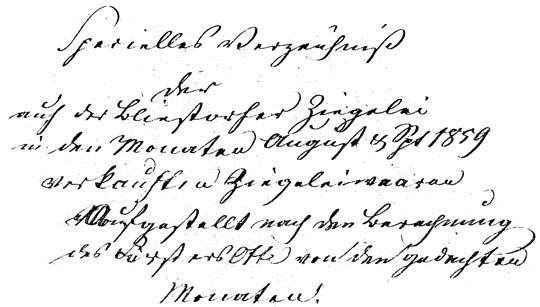 Specielles Verzeichniß
der
auf der Bliestorfer Ziegelei
in den Monaten August & Spt 1859
verkauften Ziegeleiwaaren
Aufgestellt nach den Berechnung
des Försters Otte von den gedachten
Monaten.